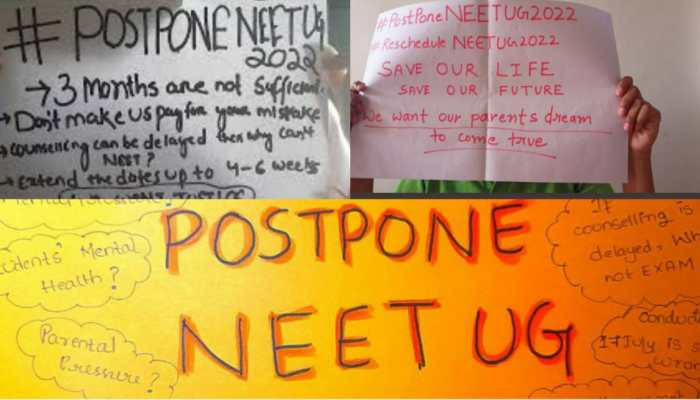 #POSTPONE NEET UG
2022
→3 Months are not Sufficient.
→Don't make us pay for your mistake
→counselling can be delayed then why can't
NEET?
→Extend the dates up to 4-6 weeks
#PostPone NEETUG2022
#Reschedule NEETUG2022
SAVE OUR LIFE
SAVE OUR FUTURE
We want our parents dream
to come true
POSTPONE
NEET UG
udents' Mental
Health?
Parental
Pressure?
If
counselling is
delayed, Wh
not EXAM
Conduct
17 July is s
wron